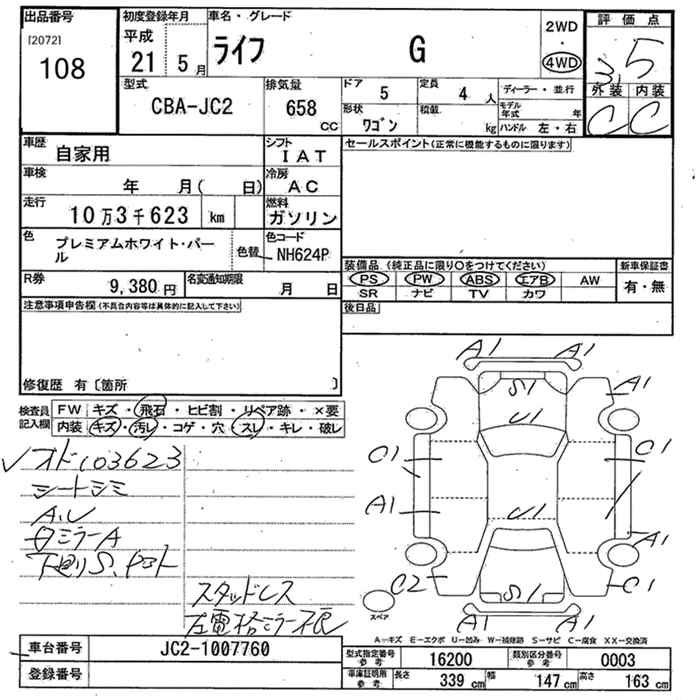 出品番号 [2072] 108
初度登録年月 平成 21 5月
車名・グレード ライフ G
2WD ・ 4WD
評価点 3.5
外装 C 内装 C
型式 CBA-JC2
排気量 658 CC
ドア 5 定員 4 人
形状 ワゴン 積載 kg
ディーラー・並行
モデル年式 年
ハンドル 左・右
車歴 自家用
シフト IAT
セールスポイント(正常に機能するものに限ります)
車検 年 月( 日)
冷房 AC
走行 10万3千623 km
燃料 ガソリン
色 プレミアムホワイト・パール
色替
色コード NH624P
装備品 (純正品に限り○をつけてください)
PS PW ABS エアB AW
SR ナビ TV カワ
新車保証書 有・無
R券 9,380円
名変通知期限 月 日
後日品
注意事項申告欄(不具合内容等は具体的に記入して下さい)
修復歴 有〔箇所 〕
検査員記入欄
FW キズ・飛石・ヒビ割・リペア跡・×要
内装 キズ・汚レ・コゲ・穴・スレ・キレ・破レ
オド103623
シートシミ
A.U
ミラーA
スタッドレス
左電格ミラー不良
A1 A1
S1
A1
U1
C1 C1
A1 U1
A1
C2 S1 C1
A1 A1
スペア
A…キズ E…エクボ U…凹み W…補修跡 S…サビ C…腐食 XX…交換済
車台番号 JC2-1007760
登録番号
型式指定番号 参考 16200 類別区分番号 参考 0003
車庫証明用 参考 長さ 339 cm 幅 147 cm 高さ 163 cm